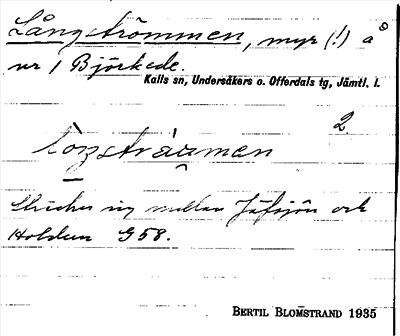 Långströmmen, myr (!) å
nr 1 Björkede.
Kalls sn, Undersåkers o. Offerdals tg, Jämtl. l.
2
sig mellan Juvsjön och
Holden G58.
BERTIL BLOMSTRAND 1935